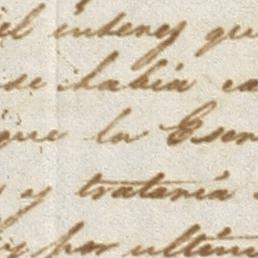 el interes qu
se habia ca
que la Escri
y trataria
y por ultim